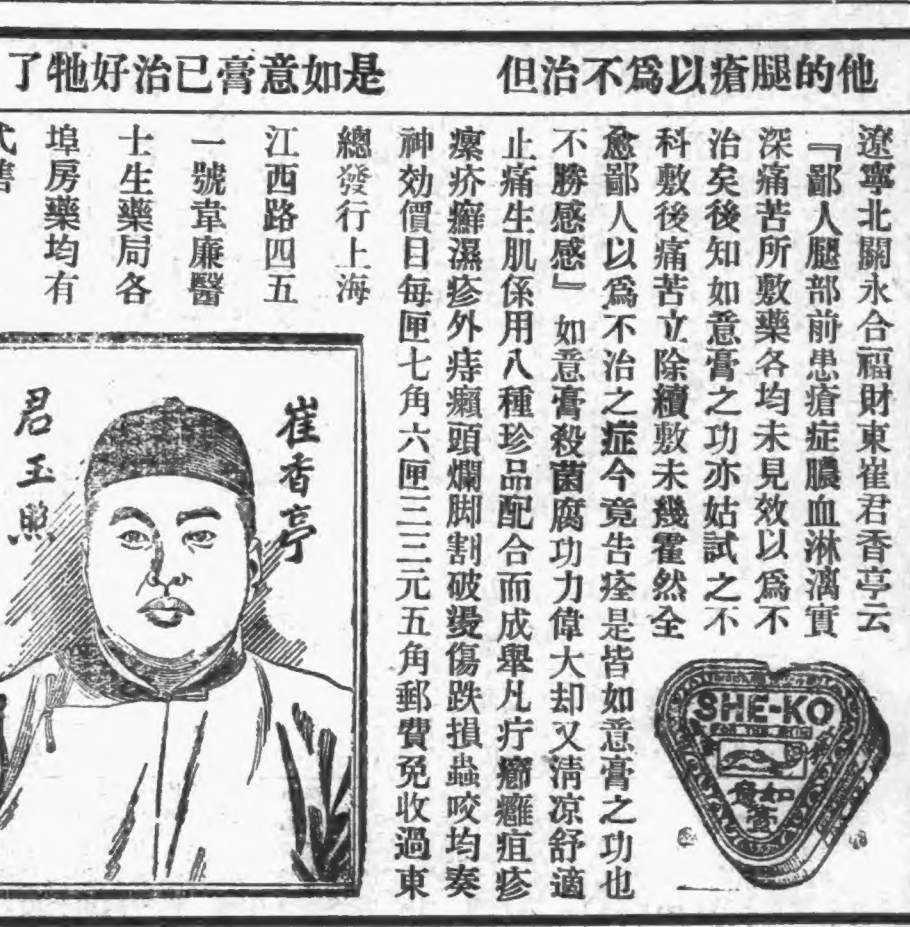 他的腿瘡以為不治但
是如意膏已治好牠了
遼寧北關永合福財東崔君香亭云
『鄙人腿部前患瘡症膿血淋漓實
深痛苦所敷藥各均未見效以為不
治矣後知如意膏之功亦姑試之不
科敷後痛苦立除續敷未幾霍然全
愈鄙人以為不治之症今竟告痊是皆如意膏之功也
不勝感感』如意膏殺菌腐功力偉大却又清凉舒適
止痛生肌係用八種珍品配合而成舉凡疔癤癰疽疹
瘰疥癬濕疹外痔癩頭爛脚割破燙傷跌損蟲咬均奏
神効價目每匣七角六匣三三元五角郵費免收過東
總發行上海
江西路四五
一號韋廉醫
士生藥局各
埠房藥均有
代售
崔香亭
君玉照
SHE-KO
FOR THE SKIN
如意膏